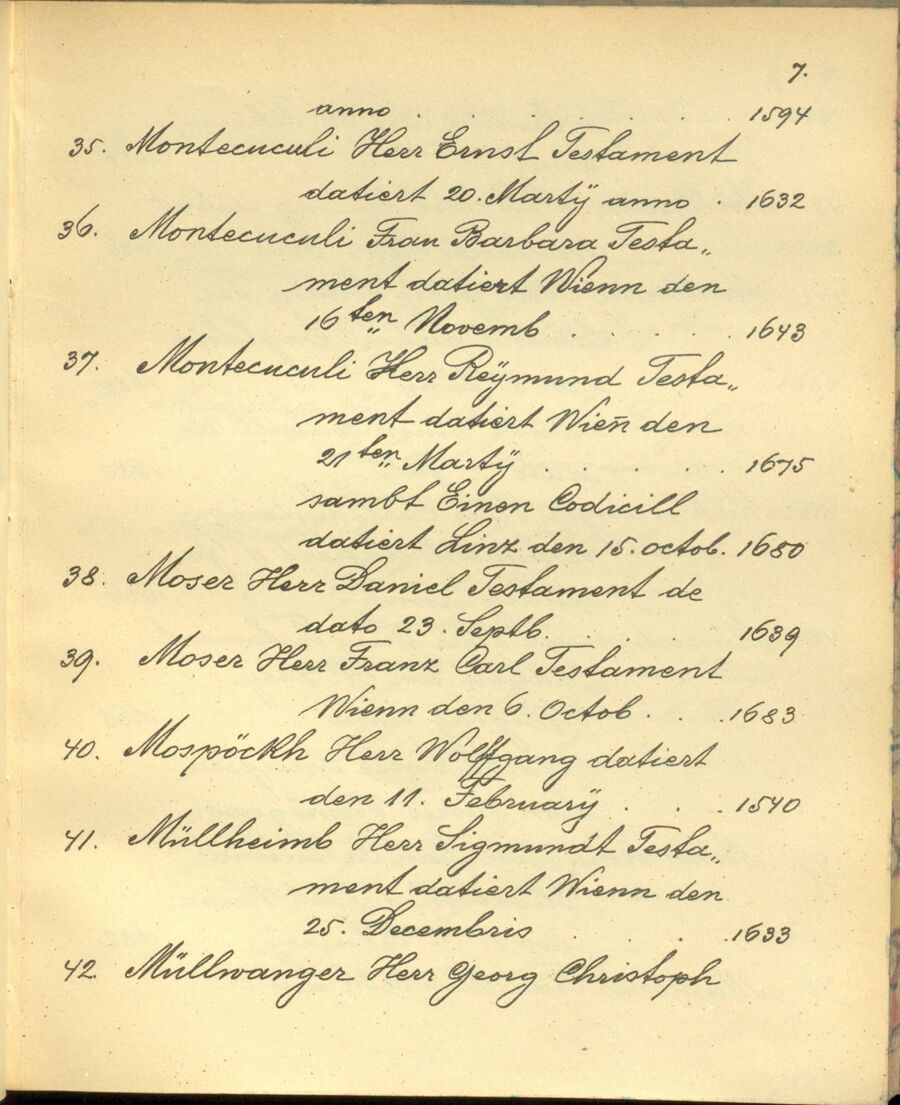 7.
anno . . . . . 1594
35. Montecuculi Herr Ernst Testament
datiert 20. Martÿ anno . 1632
36. Montecuculi Frau Barbara Testa„
ment datiert Wienn den
16ten„ Novemb . . . . . 1643
37. Montecuculi Herr Reÿmund Testa„
ment datiert Wien̄ den
21ten„ Martÿ . . . . . 1675
sambt Einen Codicill
datiert Linz den 15. octob. 1680
38. Moser Herr Daniel Testament de
dato 23. Septb. . . . . 1639
39. Moser Herr Franz Carl Testament
Wienn den 6. Octob . . . 1683
40. Mospöckh Herr Wolffgang datiert
den 11. Februarÿ . . . 1540
41. Müllheimb Herr Sigmundt Testa„
ment datiert Wienn den
25. Decembris . . . 1633
42. Müllwanger Herr Georg Christoph